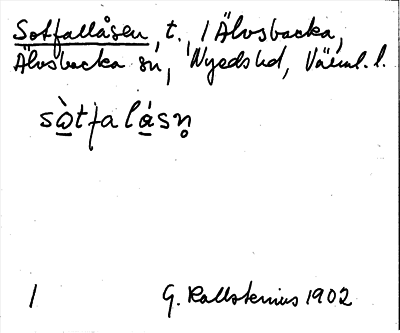 Sotfallåsen, t., / Älvsbacka,
Älvsbacka sn, Nyeds hd, Värml. l.
sòtfalåsn̥
/
G. Kallstenius 1902